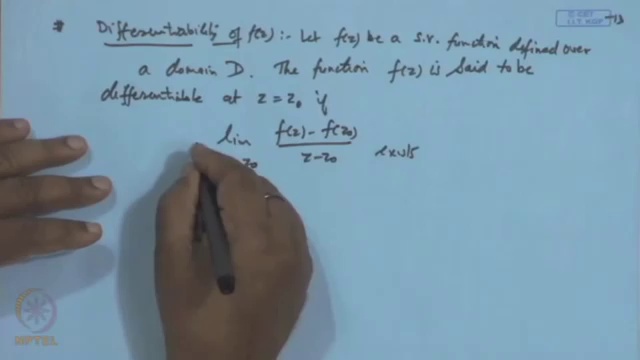 * Differentiability of f(z) :- Let f(z) be a s.v. function defined over
a domain D. The function f(z) is said to be
differentiable at z = z0 if
lim f(z) - f(z0)
z0 z - z0 exists
© CET
I.I.T. KGP
NPTEL